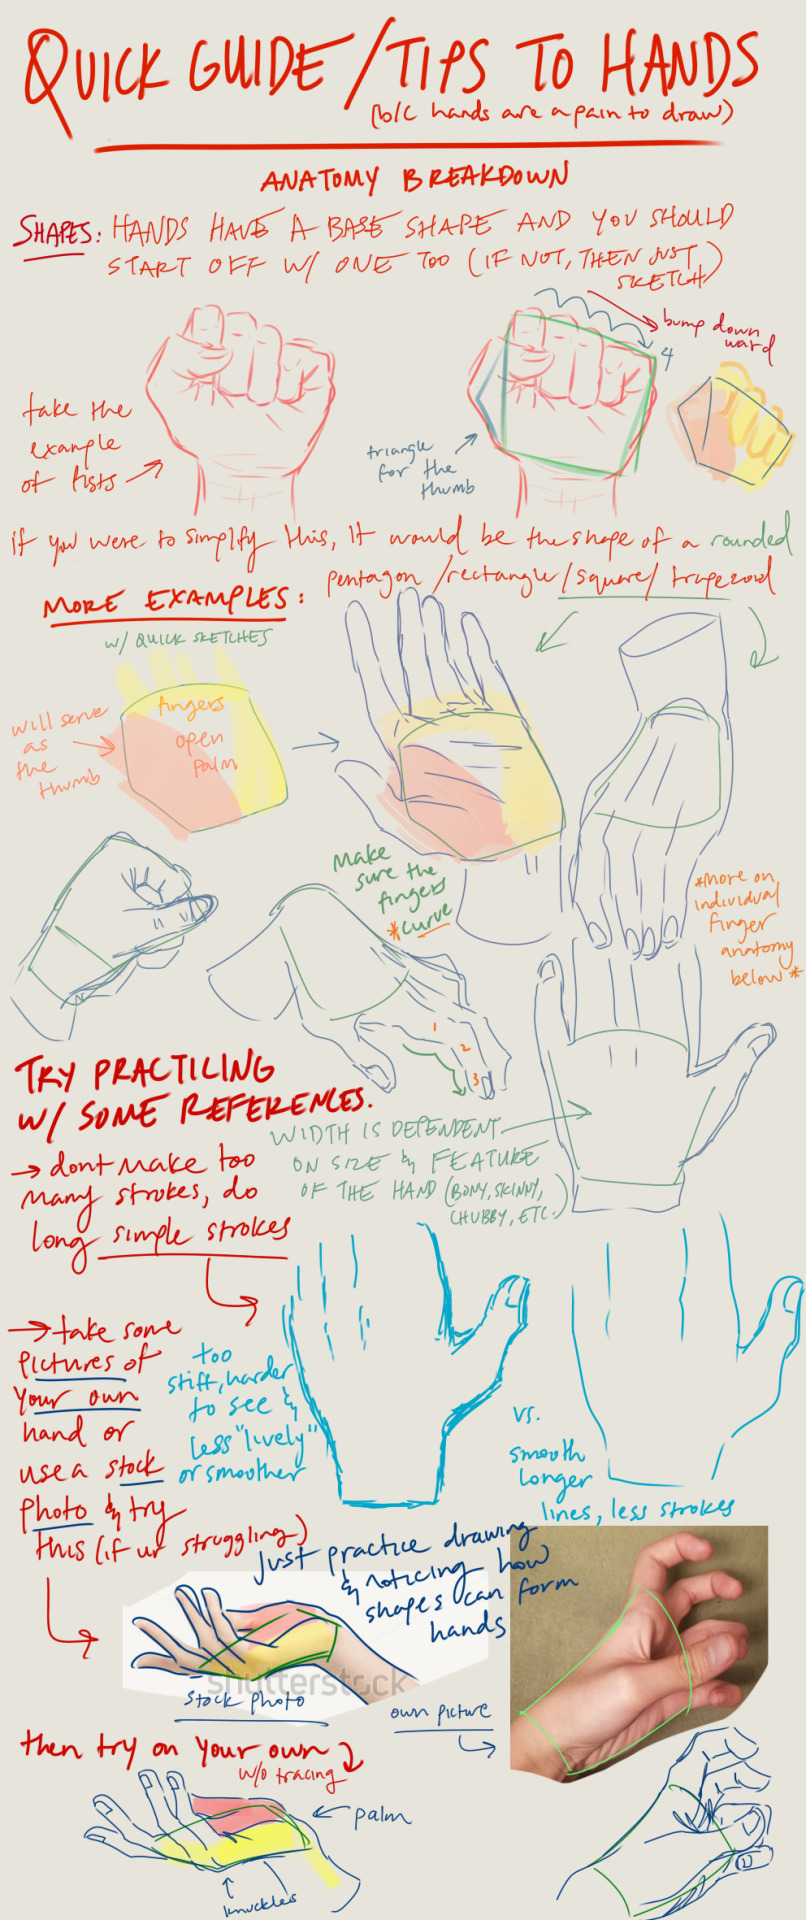 QUICK GUIDE/TIPS TO HANDS
(b/c hands are a pain to draw)
ANATOMY BREAKDOWN
SHAPES: HANDS HAVE A BASE SHAPE AND YOU SHOULD
START OFF W/ ONE TOO (IF NOT, THEN JUST
SKETCH)
bump down
ward
4
take the
example
of fists
triangle
for the
thumb
if you were to simplify this, it would be the shape of a rounded
pentagon/rectangle/square/trapezoid
MORE EXAMPLES:
w/ QUICK SKETCHES
will serve
as
the
thumb
fingers
open
palm
Make
sure the
fingers
*curve
*more on
individual
finger
anatomy
below*
1
2
3
TRY PRACTICING
W/ SOME REFERENCES.
WIDTH IS DEPENDENT
ON SIZE & FEATURE
OF THE HAND (BONY, SKINNY,
CHUBBY, ETC.)
→ dont make too
many strokes, do
long simple strokes
→ take some
pictures of
your own
hand or
use a stock
photo & try
this (if ur struggling)
too
stiff, harder
to see &
less "lively"
or smoother
vs.
smooth
longer
lines, less strokes
just practice drawing
& noticing how
shapes can form
hands
shutterstock
stock photo
own picture
then try on your own
w/o tracing
palm
knuckles